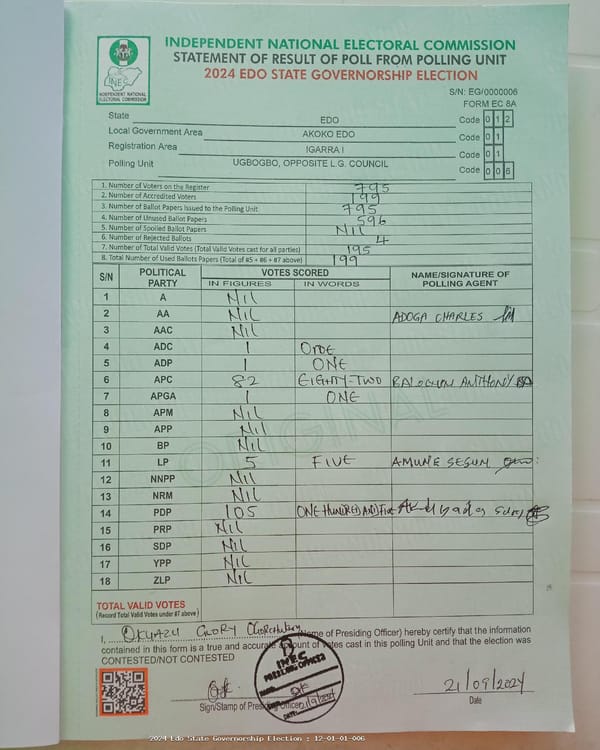 INDEPENDENT NATIONAL ELECTORAL COMMISSION
STATEMENT OF RESULT OF POLL FROM POLLING UNIT
2024 EDO STATE GOVERNORSHIP ELECTION
INEC
INDEPENDENT NATIONAL ELECTORAL COMMISSION
S/N: EG/0000006
FORM EC 8A
State EDO Code 0 1 2
Local Government Area AKOKO EDO Code 0 1
Registration Area IGARRA I Code 0 1
Polling Unit UGBOGBO, OPPOSITE L.G. COUNCIL Code 0 0 6
1. Number of Voters on the Register 795
2. Number of Accredited Voters 199
3. Number of Ballot Papers Issued to the Polling Unit 795
4. Number of Unused Ballot Papers 596
5. Number of Spoiled Ballot Papers NIL
6. Number of Rejected Ballots 4
7. Number of Total Valid Votes (Total Valid Votes cast for all parties) 195
8. Total Number of Used Ballots Papers (Total of #5 + #6 + #7 above) 199
S/N POLITICAL PARTY VOTES SCORED NAME/SIGNATURE OF POLLING AGENT
IN FIGURES IN WORDS
1 A NIL
2 AA NIL ADOGA CHARLES
3 AAC NIL
4 ADC 1
5 ADP 1 ONE
6 APC 82 EIGHTY-TWO ANTHONY
7 APGA 1 ONE
8 APM NIL
9 APP NIL
10 BP NIL
11 LP 5 FIVE AMUNE SEGUN
12 NNPP NIL
13 NRM NIL
14 PDP 105 ONE HUNDRED AND FIVE
15 PRP NIL
16 SDP NIL
17 YPP NIL
18 ZLP NIL
ORIGINAL
TOTAL VALID VOTES
(Record Total Valid Votes under #7 above)
I, GLORY (Name of Presiding Officer) hereby certify that the information
contained in this form is a true and accurate account of votes cast in this polling Unit and that the election was
CONTESTED/NOT CONTESTED
INEC
PRESIDING OFFICER
Sign/Stamp of Presiding Officer
21/09/2024
Date
2024 Edo State Governorship Election : 12-01-01-006